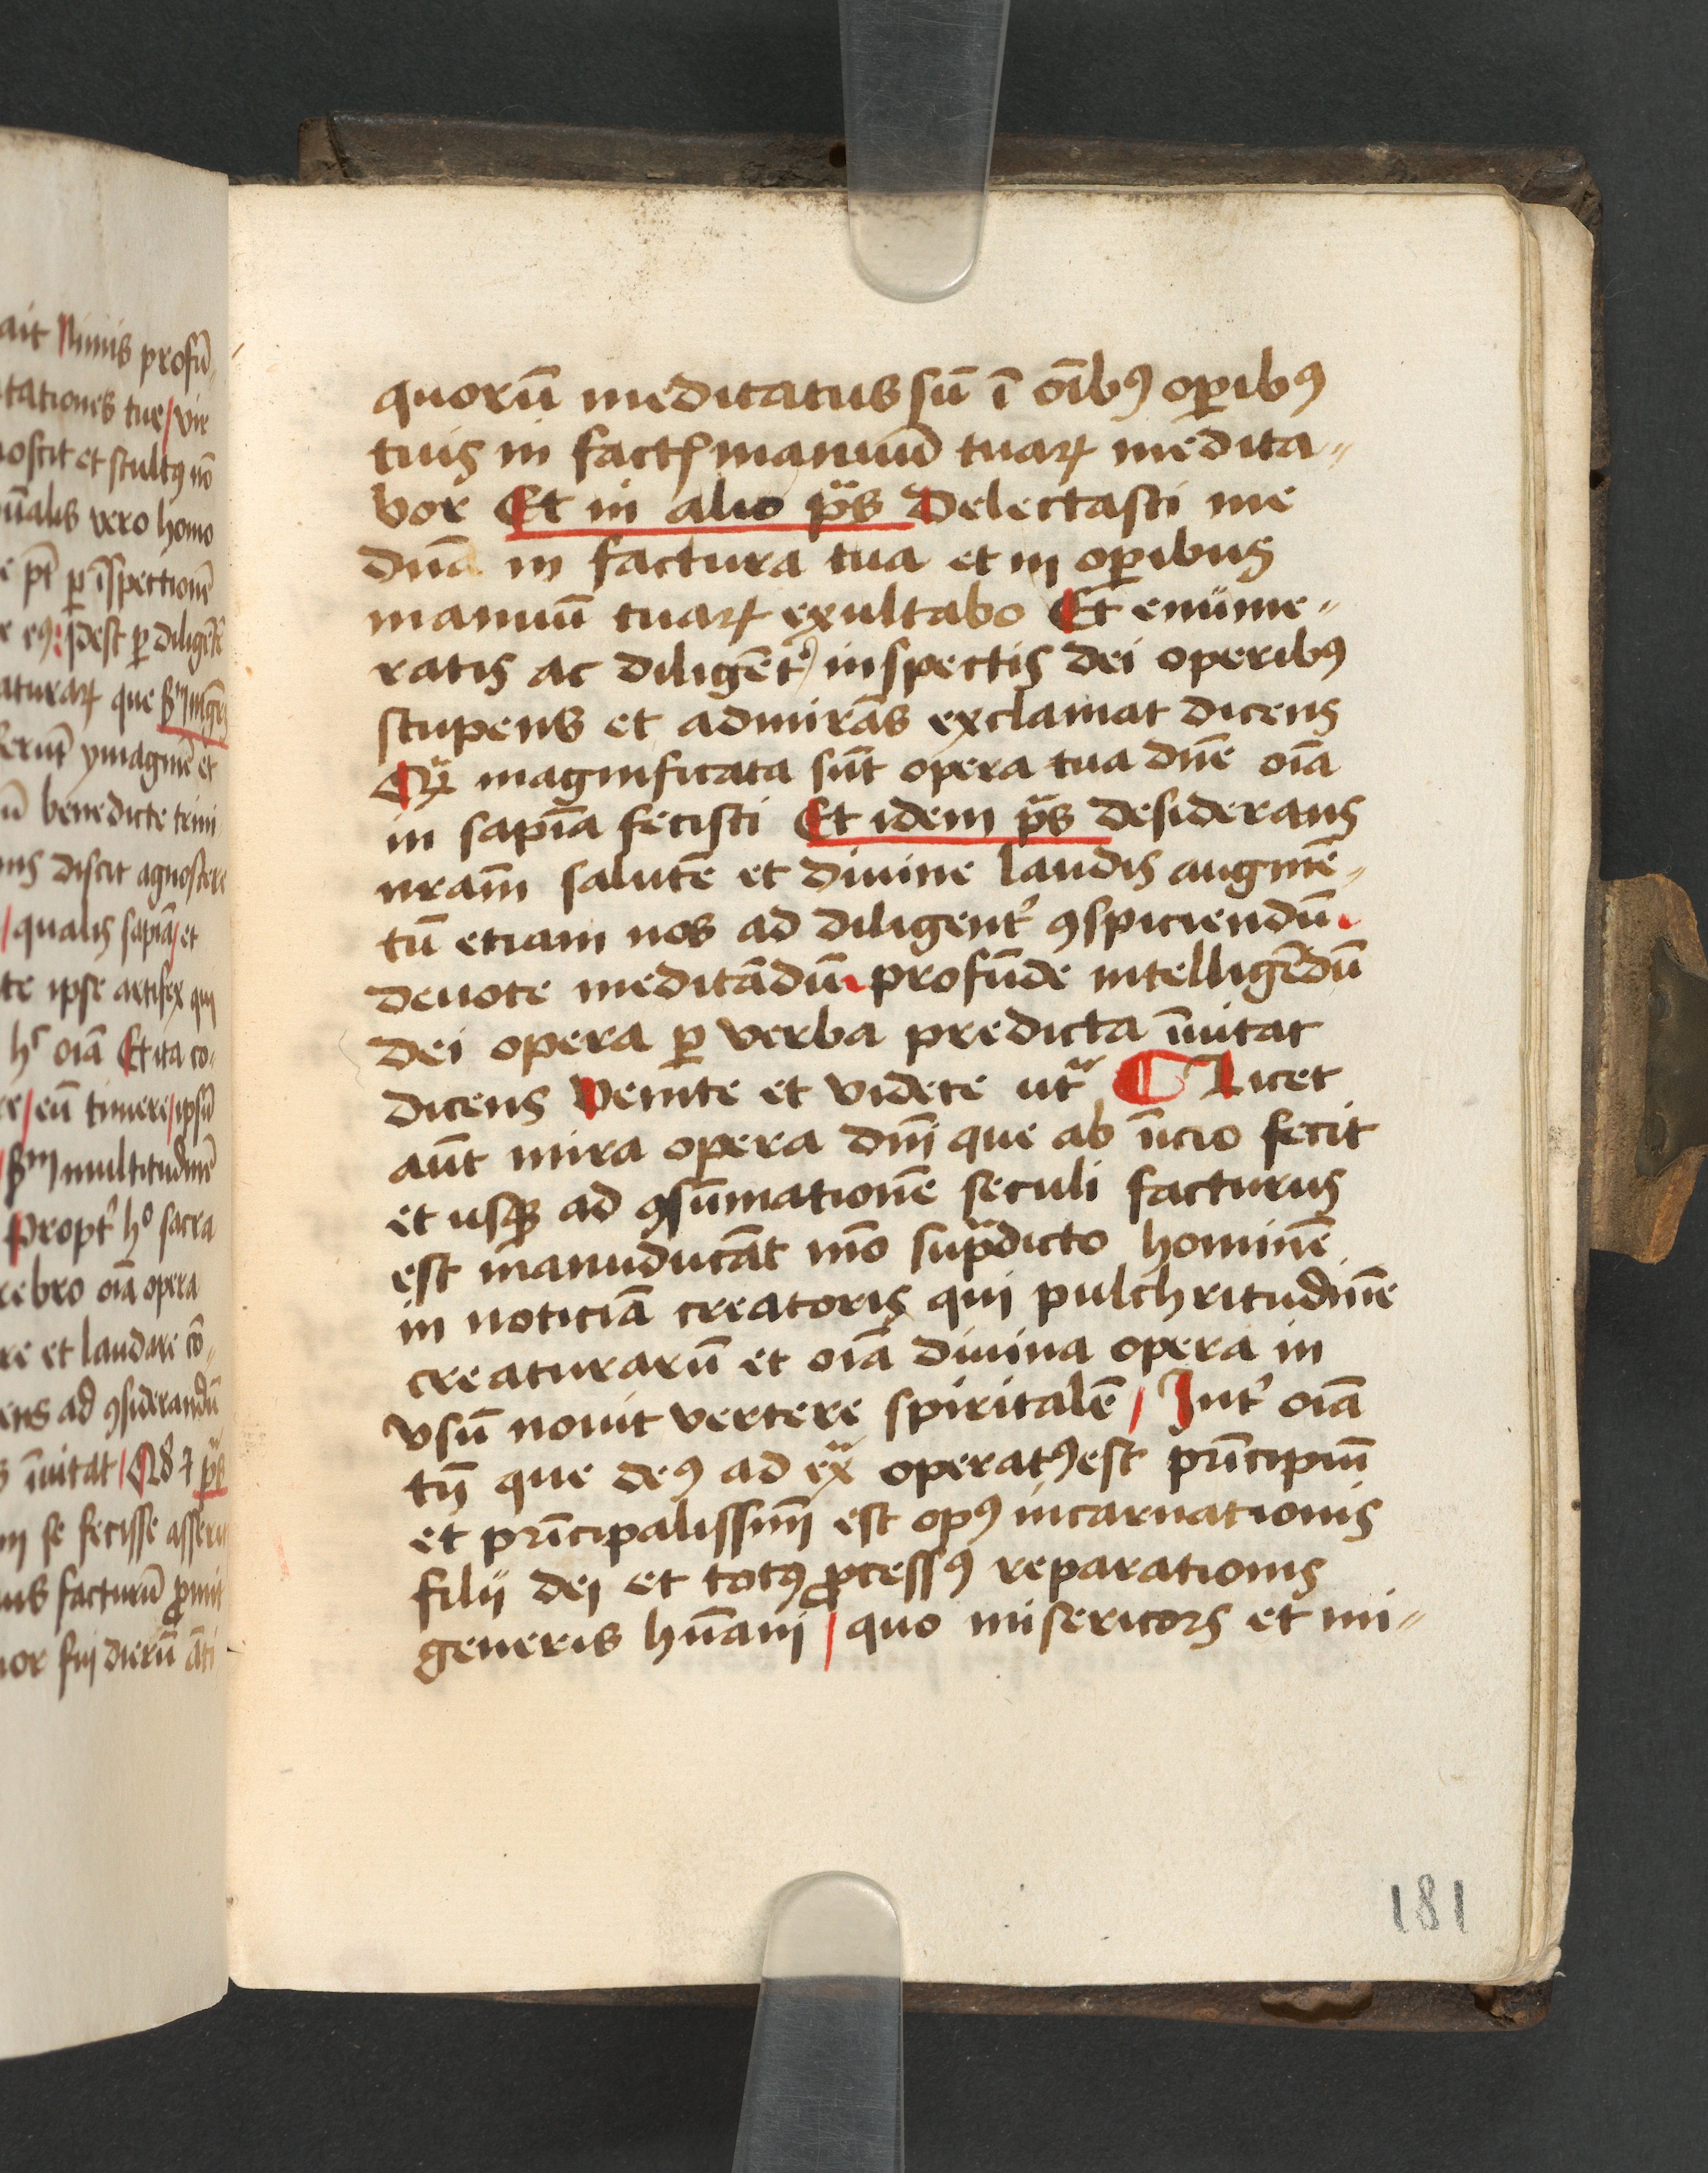 ait Nimis profū
tationes tue / vir
noscit et stultꝯ nō
ūalis vero homo
e pt̄ ꝑ īspectionē
e eꝯ: idest ꝑ diligētē
aturaꝝ que
ferūt ymaginē et
ū benedicte trini
ns discit agnoscere
/ qualis sapiā / et
te ipse artifex qui
oīa Et ita co-
re / eū timere / ipsū
multitudinē
Propt᷑ hͦ sacra
rebro oīa opera
re et laudare cō-
ens ad ꝯsiderandū
īuitat /
m se fecisse asseru
us facturū ꝓmit
or fui dierū āti
quorū meditatus sū ī oīibꝯ oꝑibꝯ
tuis in factꝭ manuū tuaꝝ medita-
bor Et in alio pᷓs Delectasti me
dn̄e in factura tua et in oꝑibus
manuū tuaꝝ exultabo Et enume-
ratis ac diligēt᷑ inspectis dei operibꝯ
stupens et admirās exclamat dicens
Qᷓ magnificata sūt opera tua dn̄e oīa
in sapīa fecisti Et idem pᷓs desiderans
nr̄am salutē et diuine laudis augmē-
tū etiam nos ad diligent᷑ ꝯspiciendū
deuote meditādū profūde intelligēdū
dei opera ꝑ verba predicta īuitat
dicens Venite et videte utᷓ ¶ Licet
aūt mira opera dn̄i que ab īicio fecit
et usqꝫ ad ꝯsūmationē seculi facturus
est manuducāt mō supᷓdicto hominē
in noticiā creatoris qui pulchritudinē
creaturarū et oīa diuina opera in
vsū nouit vertere spiritalē / Int᷑ oīa
tn̄ que deꝯ ad exᷓ operatꝯ est prīcipiū
et prīcipalissim̄ est opꝯ incarnationis
filii dei et totꝯ ꝓcessꝯ reparationis
generis hūani / quo misericors et mi-
181